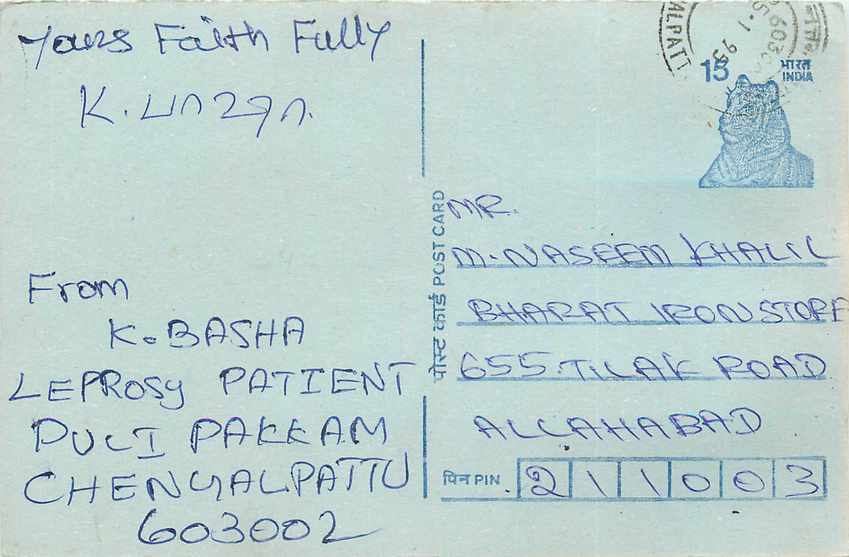 Yours Faith Fully
K. பாஷா.
From
K. BASHA
LEPROSY PATIENT
PULI PAKKAM
CHENGALPATTU
603002
15
भारत
INDIA
पोस्ट कार्ड POST CARD
MR.
M. NASEEM KHALIL
BHARAT IRON STORE
655. TILAK ROAD
ALLAHABAD
पिन PIN 211003